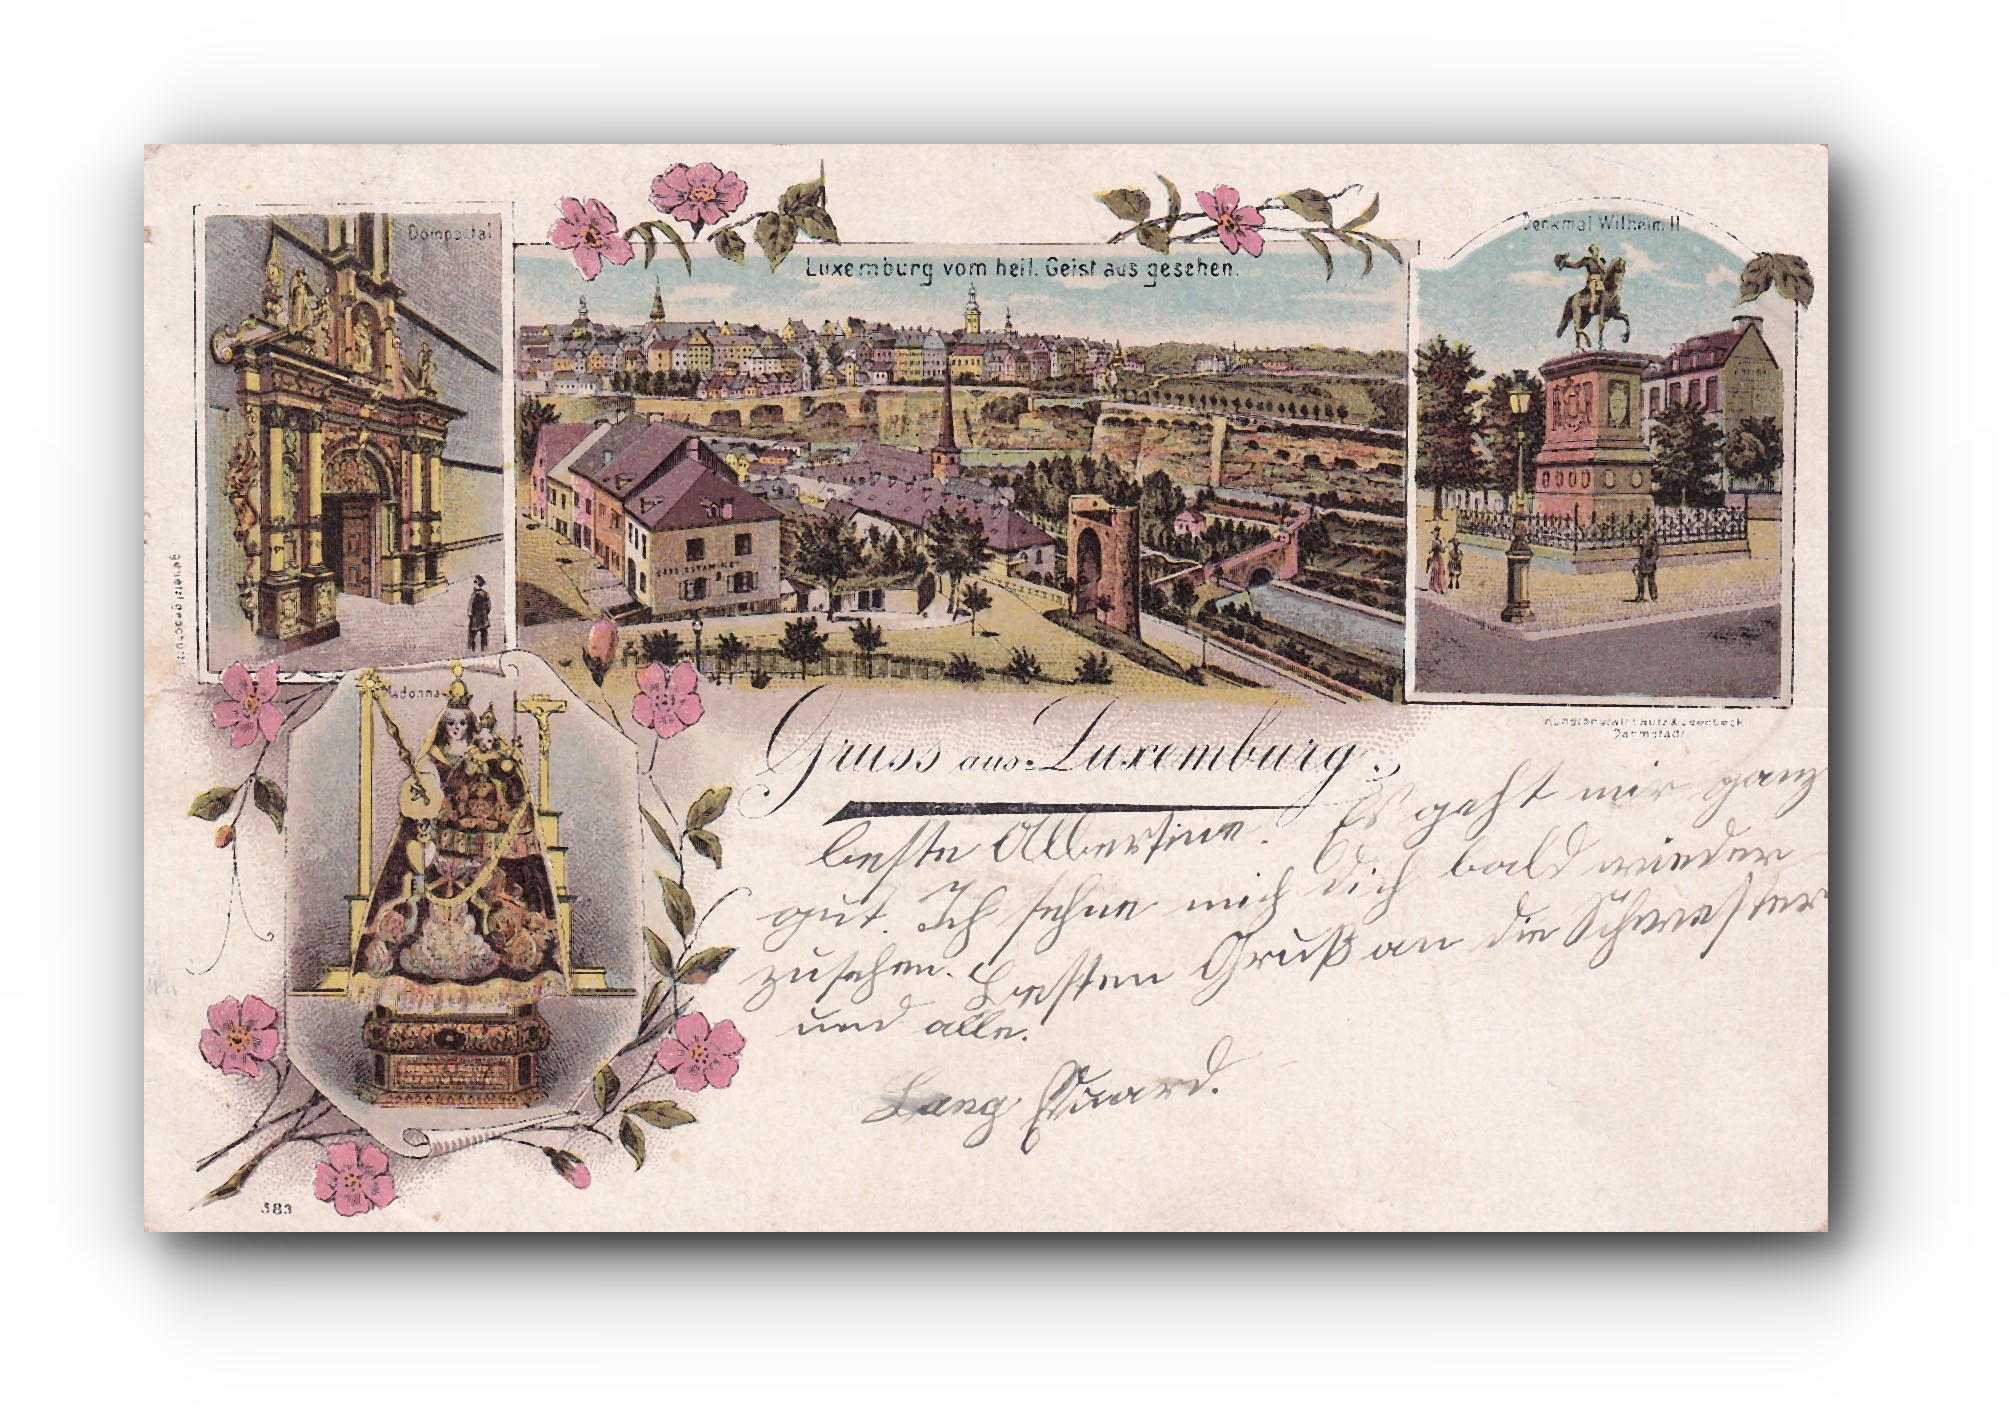 Domportal
Luxemburg vom heil. Geist aus gesehen.
Denkmal Wilhelm II
gesetzl geschützt
Madonna
CAFE ESTAMINET
Darmstadt
Gruss aus Luxemburg.
beste Albertine. Es geht mir ganz
gut. Ich sehne mich dich bald wieder
zusehen. Besten Gruß an die Schwester
und alle.
Lang Eduard.
583